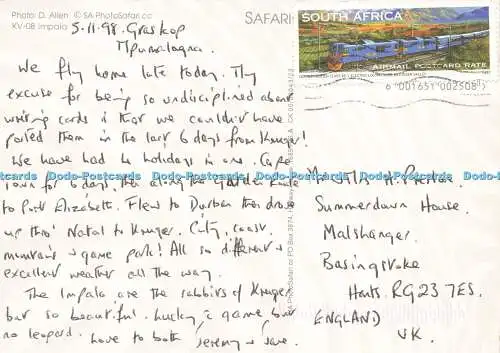 Photo: D. Allen © SA PhotoSafari cc
KV-08 Impala
SAFARI
SOUTH AFRICA
AIRMAIL POSTCARD RATE
6 001651 002508
5.11.98. Graskop
Mpumalagna.
We fly home late today. My
excuse for being so undisciplined about
writing cards is that we couldn't have
posted them in the last 6 days from Kruger!
We have had 4 holidays in one. Cape
Town for 6 days, then along the Garden Route
to Port Elizabeth. Flew to Durban then drove
up thro' Natal to Kruger. City, coast
mountains & game park! All so different &
excellent weather all the way.
The Impala are the rabbits of Kruger
but so beautiful. Lucky & game but
no leopard. Love to both Jeremy & Jane.
H. Preston.
Summerdown House,
Malshanger,
Basingstoke
Hants. RG23 7ES.
ENGLAND
UK.
Dodo-Postcards Dodo-Postcards Dodo-Postcards Dodo-Postcards